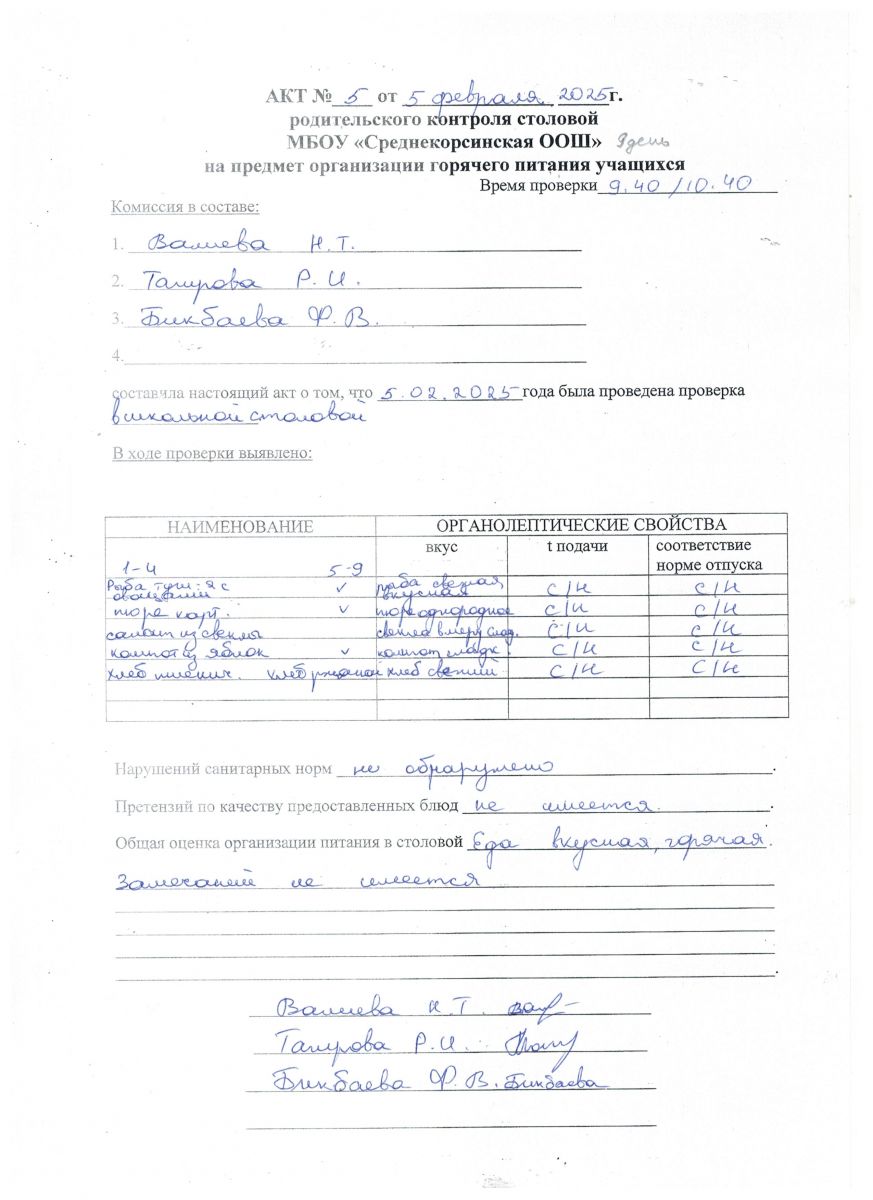 АКТ № 5 от 5 февраля 2025г.
родительского контроля столовой
МБОУ «Среднекорсинская ООШ» 9 день
на предмет организации горячего питания учащихся
Время проверки 9.40 /10.40
Комиссия в составе:
1. Валиева Н.Т.
2. Тагирова Р.И.
3. Бикбаева Ф.В.
4.
составила настоящий акт о том, что 5.02.2025 года была проведена проверка
в школьной столовой
В ходе проверки выявлено:
НАИМЕНОВАНИЕ ОРГАНОЛЕПТИЧЕСКИЕ СВОЙСТВА
вкус t подачи соответствие норме отпуска
1-4 5-9
Рыба туш. с овощами ✓ рыба свежая, вкусная С/Н С/Н
пюре карт. ✓ пюре однородное С/Н С/Н
салат из свеклы свекла в меру слад. С/Н С/Н
компот из яблок ✓ компот сладк. С/Н С/Н
хлеб пшенич. хлеб ржаной хлеб свежий С/Н С/Н
Нарушений санитарных норм не обнаружено.
Претензий по качеству предоставленных блюд не имеется.
Общая оценка организации питания в столовой Еда вкусная, горячая.
Замечаний не имеется
Валиева Н.Т.
Тагирова Р.И.
Бикбаева Ф.В. Бикбаева